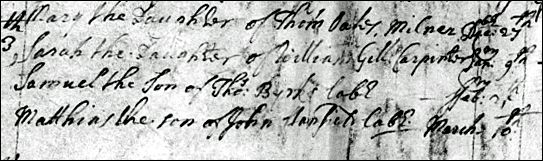 Mary the Daughter of Thom Oates, Milner Dec: 27th
3, Sarah the Daughter of William Gill Carpinter Jan: 9th
Samuel the Son of Tho: Burn Labr Feb:
Matthias the son of John Labr March 10th